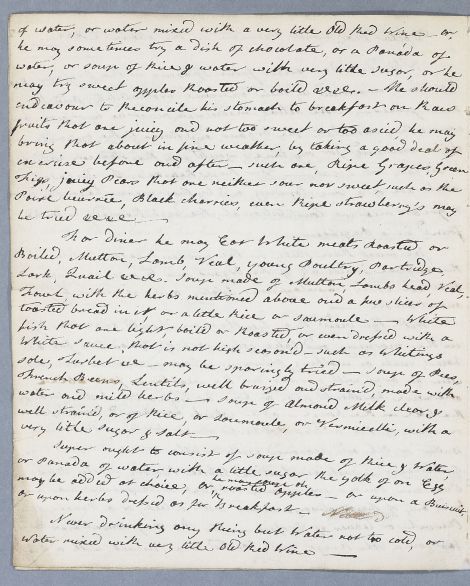 of water, or water mixed with a very little Old Red Wine — or
he may sometimes try a dish of chocolate, or a Panada of
water, or soup of Rice & water with very little sugar, or he
may try sweet apples Roasted or boild &c &c. — He should
endeavour to Reconcile his stomach to breakfast on Raw
fruits that are juicy and not too sweet or too acid, he may
bring that about in fine weather, by taking a good deal of
exercise before and after — such are, Ripe Grapes, Green
Figs, juicy Pears that are neither sour nor sweet such as the
Poire beurrée, Black charries, even Ripe strawberry's may
be tried &c &c —
For diner he may Eat White meats, Roasted or
Boiled, Mutton, Lamb, Veal, young Poultry, Partridge,
Lark, Quail &c &c. soup made of Mutton, Lambs head Veal,
Fowl, with the herbs mentioned above and a few slices of
toasted bread in it or a little Rice or saumoule — White
fish that are light boild or Roasted, or even dressed with a
White sauce, that is not high season'd — such as Whitings
sole, Turbot &c — may be sparingly tried — soup of Peas,
French Beens, Lentils, well bruized and strain'd, made with
water and mild herbs — soup of Almond Milk clear &
well strain'd, or of Rice, or saumoule, or Vermicelli, with a
very little sugar & salt —
Super ought to consist of soup made of Rice & Water,
or Panada of water with a little sugar the yolk of an Egg
may be added at choice, or he may supe on roasted apples — or upon a Biscuit,
or upon herbs dressed as for Breakfast —
Never drinking any thing but Water not too cold, or
Water mixed with very little Old Red Wine —